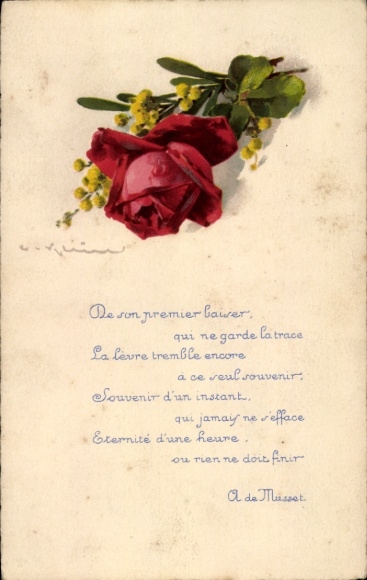 De son premier baiser,
qui ne garde la trace
La lèvre tremble encore
à ce seul souvenir;
Souvenir d'un instant,
qui jamais ne s'efface
Eternité d'une heure,
ou rien ne doit finir
A de Musset.